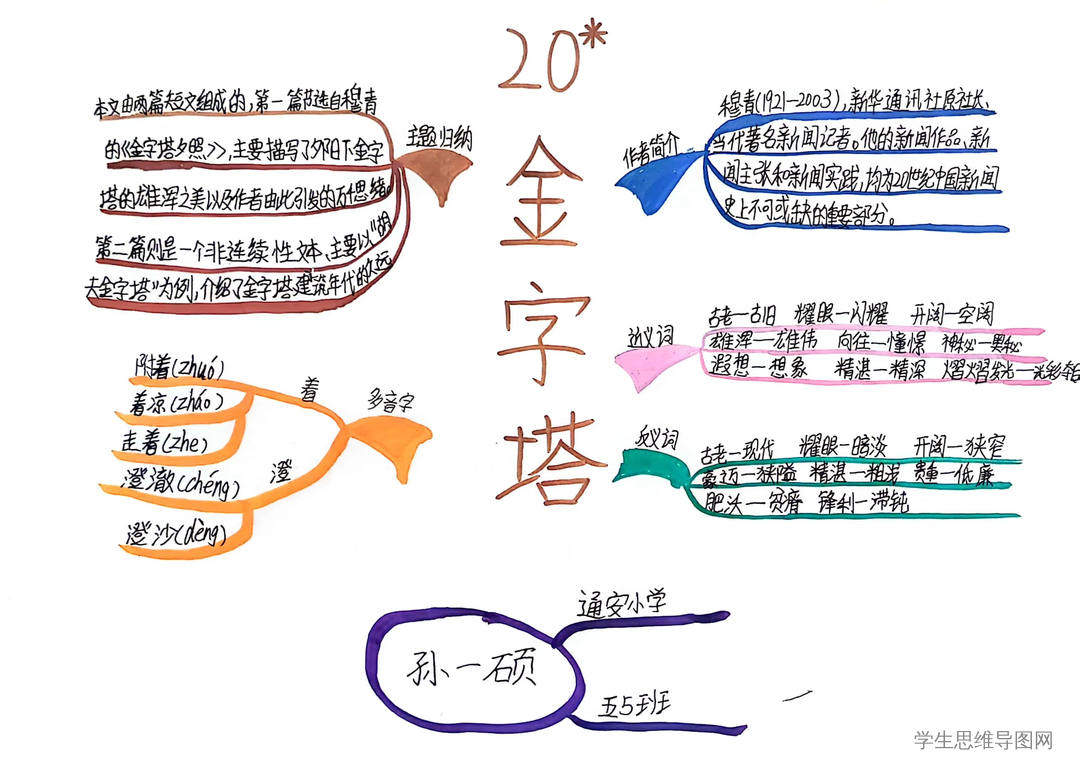 20*
金
字
塔
主题归纳
本文由两篇短文组成的,第一篇节选自穆青
的《金字塔夕照》,主要描写了夕阳下金字
塔的雄浑之美以及作者由此引发的万千思绪。
第二篇则是一个非连续性文本、主要以“胡
夫金字塔”为例,介绍了金字塔建筑年代的久远
作者简介
穆青(1921—2003),新华通讯社原社长、
当代著名新闻记者。他的新闻作品、新
闻主张和新闻实践,均为20世纪中国新闻
史上不可或缺的重要部分。
近义词
古老—古旧 耀眼—闪耀 开阔—空阔
雄浑—雄伟 向往—憧憬 神秘—奥秘
遐想—想象 精湛—精深 熠熠发光—光彩夺目
反义词
古老—现代 耀眼—暗淡 开阔—狭窄
豪迈—狭隘 精湛—粗浅 贵重—低廉
肥沃—贫瘠 锋利—滞钝
多音字
着
附着(zhuó)
着凉(zháo)
走着(zhe)
澄
澄澈(chéng)
澄沙(dèng)
孙一硕
通安小学
五5班
学生思维导图网